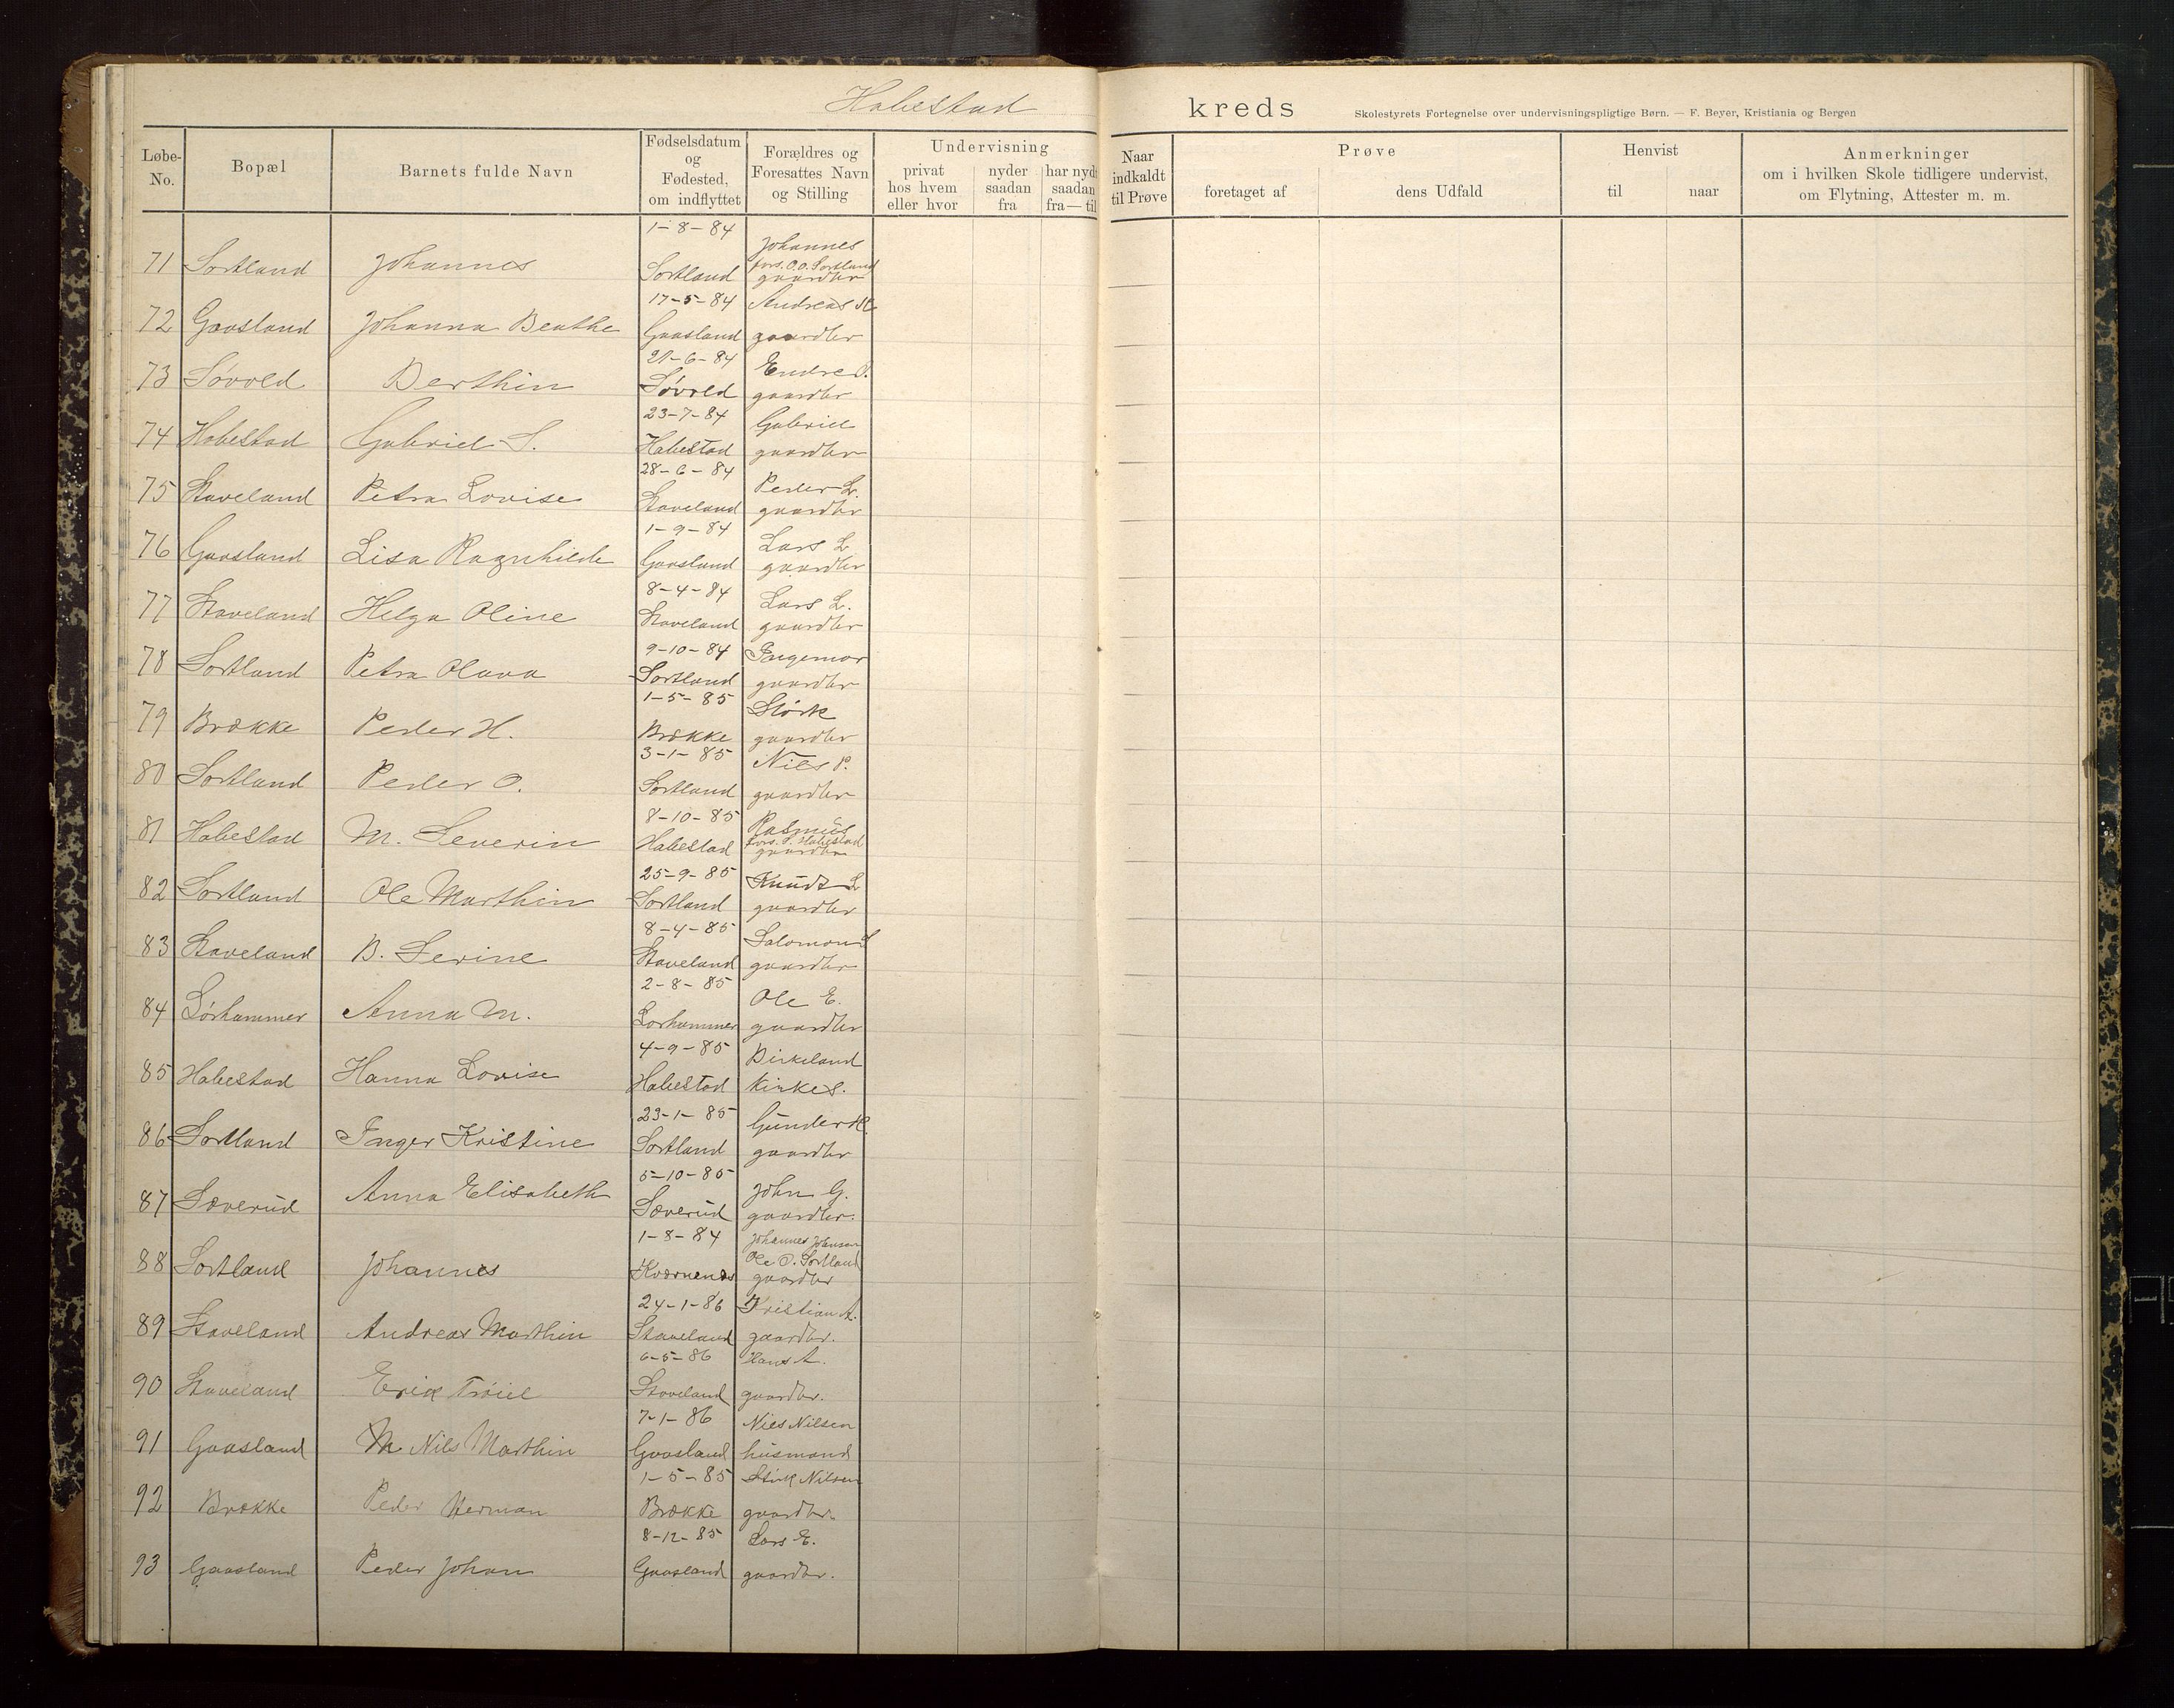 Habestad kreds Skolestyrets Fortegnelse over undervisningspligtige Børn. — F. Beyer, Kristiania og Bergen
Løbe-No. Bopæl Barnets fulde Navn Fødselsdatum og Fødested, om indflyttet Forældres og Foresattes Navn og Stilling Undervisning privat hos hvem eller hvor nyder saadan fra har nydt saadan fra—til Naar indkaldt til Prøve Prøve foretaget af dens Udfald Henvist til naar Anmerkninger om i hvilken Skole tidligere undervist, om Flytning, Attester m. m.
1-8-84 Johannes
71 Sortland Johannes Sortland fors. O.O. Sortland gaardbr
17-5-84 Andreas
72 Gaasland Johanna Beathe Gaasland gaardbr
21-6-84 Endre S.
73 Søvold Berthin Søvold gaardbr
23-7-84 Gabriel
74 Habestad Gabriel S. Habestad gaardbr
28-6-84 Peder L.
75 Staveland Petra Lovise Staveland gaardbr
1-9-84 Lars L
76 Gaasland Lisa Ragnhilde Gaasland gaardbr
8-4-84 Lars L.
77 Staveland Helga Oline Staveland gaardbr
9-10-84 Ingemar
78 Sortland Petra Olava Sortland gaardbr
1-5-85 Störk
79 Brække Peder H. Brække gaardbr
3-1-85 Nils P.
80 Sortland Peder O. Sortland gaardbr
8-10-85 Rasmus
81 Habestad M. Severin Habestad fors. S. Habestad gaardbr
25-9-85 Knudt L
82 Sortland Ole Marthin Sortland gaardbr
8-4-85 Salomon S
83 Staveland B. Serine Staveland gaardbr
2-8-85 Ole E.
84 Sørhammer Anna M. Sorhammer gaardbr
4-9-85 Birkeland
85 Habestad Hanna Lovise Habestad Kirkes.
23-1-85 Gunder H.
86 Sortland Inger Kristine Sortland gaardbr
5-10-85 John G.
87 Sæverud Anna Elisabeth Sæverud gaardbr.
1-8-84 Johannes Johansen
88 Sortland Johannes Kvernenes Ole O. Sortland gaardbr
24-1-86 Kristian A.
89 Staveland Andreas Marthin Staveland gaardbr.
6-5-86 Hans A.
90 Staveland Erik Staveland gaardbr.
7-1-86 Niels Nilsen
91 Gaasland M Nils Marthin Gaasland husmand
1-5-85 Stirk Nilsen
92 Brække Peder Herman Brække gaardbr.
8-12-85 Lars E.
93 Gaasland Peder Johan Gaasland gaardbr.